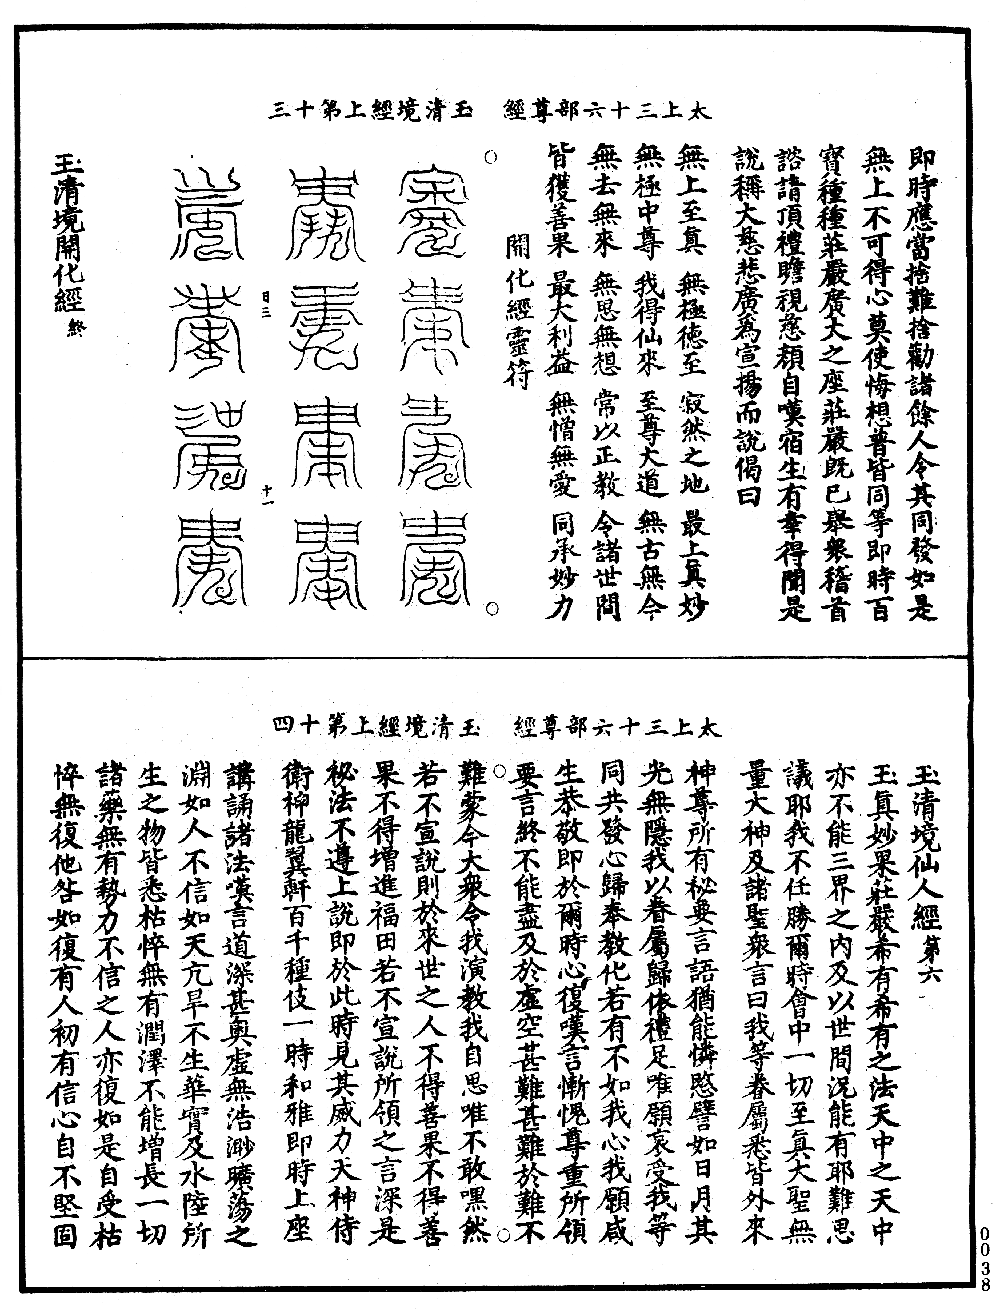 太上三十六部尊經　玉清境經上第十三
即時應當捨難捨勸諸餘人令其同發如是
無上不可得心莫使悔想普皆同等即時百
寶種種莊嚴廣大之座莊嚴既已舉衆稽首
諮請頂禮瞻視慈顏自嘆宿生有幸得聞是
說稱大慈悲廣爲宣揚而說偈曰
無上至真　無極德至　寂然之地　最上真妙
無極中尊　我得仙來　至尊大道　無古無今
無去無來　無思無想　常以正教　令諸世間
皆獲善果　最大利益　無憎無愛　同承妙力
開化經靈符
日三
十一
玉清境開化經終
太上三十六部尊經　玉清境經上第十四
玉清境仙人經第六
玉真妙果莊嚴希有希有之法天中之天中
亦不能三界之內及以世間況能有耶難思
議耶我不任勝爾時會中一切至真大聖無
量大神及諸聖衆言曰我等眷屬悉皆外來
神尊所有秘要言語猶能憐愍譬如日月其
光無隱我以眷屬歸依禮足唯願哀受我等
同共發心歸奉教化若有不如我心我願咸
生恭敬即於爾時心復嘆言慚愧尊重所領
要言終不能盡及於虛空甚難甚難於難不
難蒙今大衆令我演教我自思唯不敢嘿然
若不宣說則於來世之人不得善果不得善
果不得增進福田若不宣說所領之言深是
秘法不遵上說即於此時見其威力天神侍
衛柳龍翼軒百千種伎一時和雅即時上座
講誦諸法嘆言道深甚奧虛無浩渺曠蕩之
淵如人不信如天亢旱不生華實及水陸所
生之物皆悉枯悴無有潤澤不能增長一切
諸藥無有勢力不信之人亦復如是自受枯
悴無復他咎如復有人初有信心自不堅固
0038